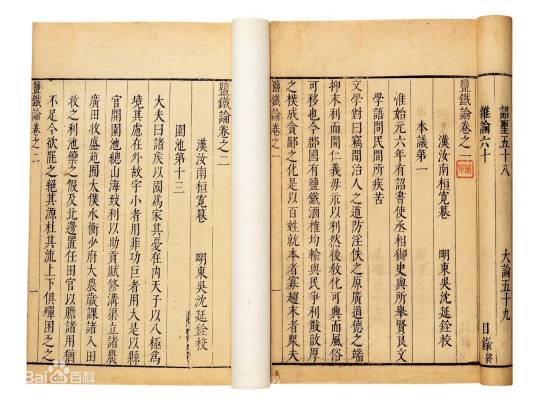 詔聖五十八 大論五十九
雜論六十 目錄終
鹽鐵論卷之一
漢汝南桓寬纂 明東吳沈延銓校
本議第一
惟始元六年有詔書使丞相御史與所舉賢良文
學語問民間所疾苦
文學對曰竊聞治人之道防淫佚之原廣道德之端
抑末利而開仁義毋示以利然後敎化可興而風俗
可移也今郡國有鹽鐵酒榷均輸與民爭利散敦厚
之樸成貪鄙之化是以百姓就本者寡趨末者衆夫
鹽鐵論卷之一 一
鹽鐵論卷之二
漢汝南桓寬纂 明東吳沈延銓校
園池第十三
大夫曰諸矦以國爲家其憂在內天子以八極爲
境其慮在外故宇小者用菲功巨者用大是以縣
官開園池總山海致利以助貢賦修溝渠立諸農
廣田收盛苑囿太僕水衡少府大農歲課諸入田
牧之利池籞之假及北邊置任田官以贍諸用猶
不足今欲罷之絕其源杜其流上下俱殫困乏之
鹽鐵論卷之二 一
Bai百科